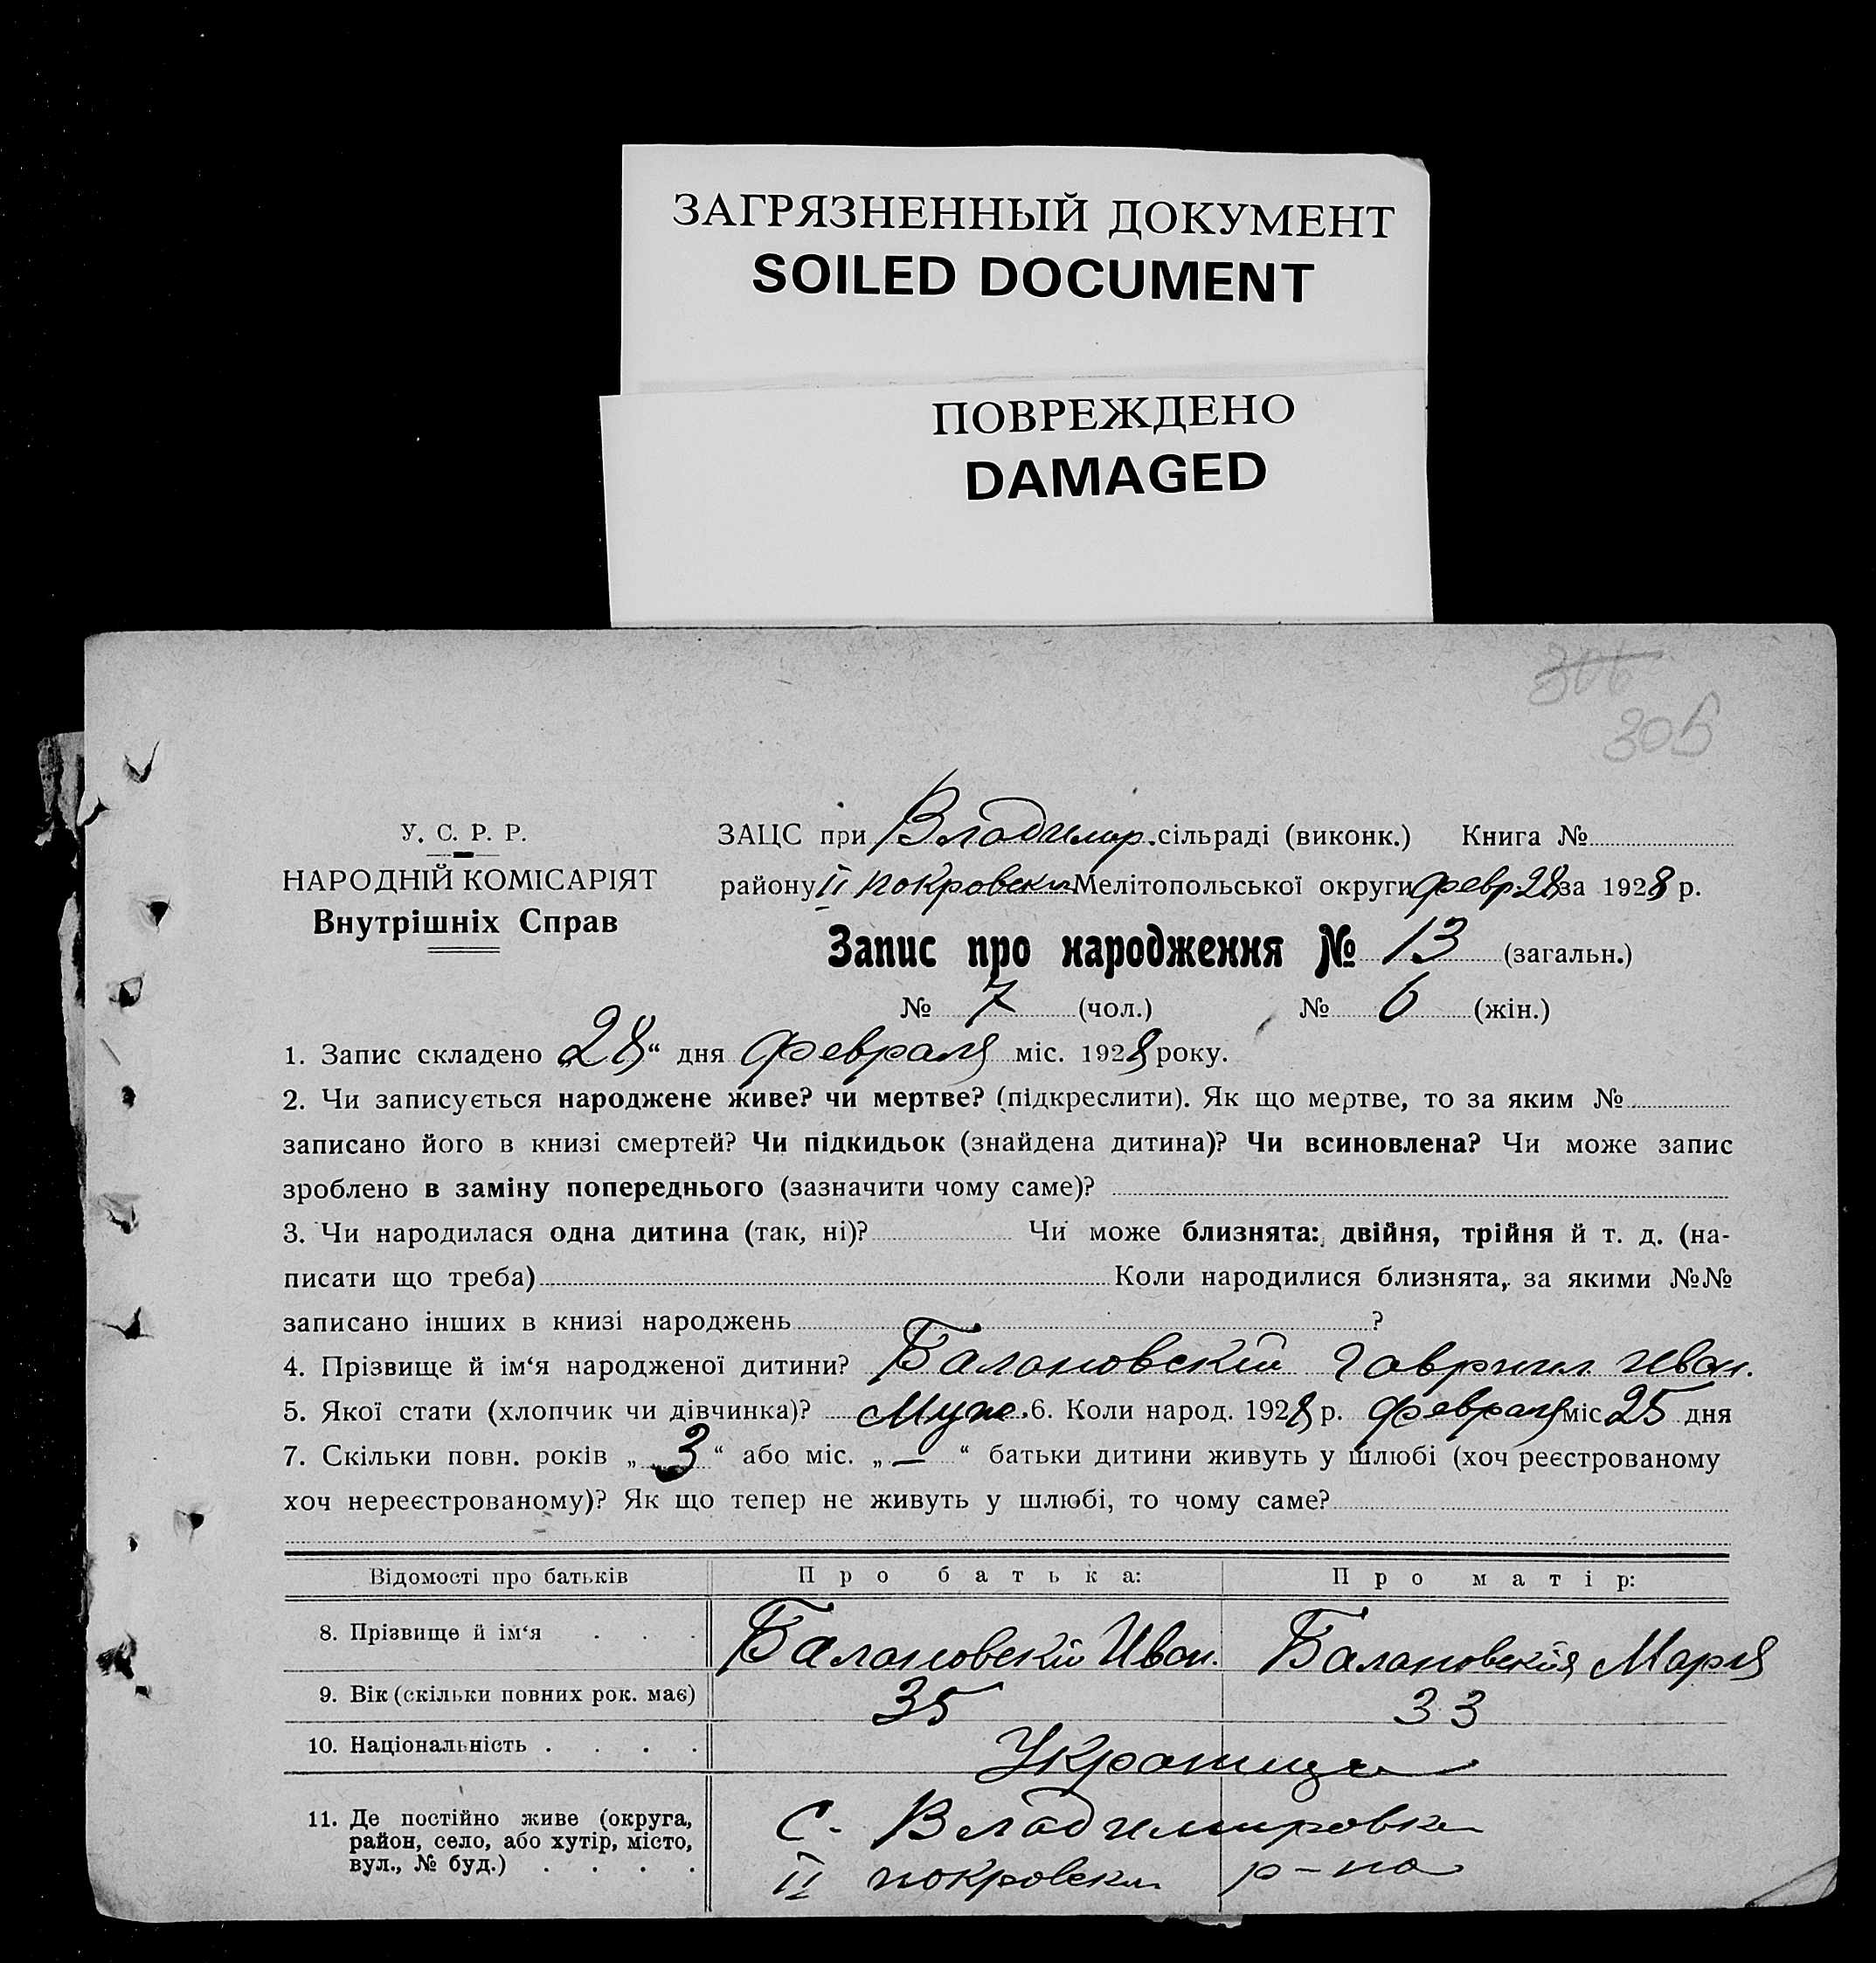 ЗАГРЯЗНЕННЫЙ ДОКУМЕНТ
SOILED DOCUMENT
ПОВРЕЖДЕНО
DAMAGED
306
305
У. С. Р. Р.
НАРОДНІЙ КОМІСАРІЯТ
Внутрішніх Справ
ЗАЦС при Владимир. сільраді (виконк.) Книга №
району II покровски Мелітопольської округи февр 28 за 1928 р.
Запис про народження № 13 (загальн.)
№ 7 (чол.) № 6 (жін.)
1. Запис складено „28“ дня февраля міс. 1928 року.
2. Чи записується народжене живе? чи мертве? (підкреслити). Як що мертве, то за яким №
записано його в книзі смертей? Чи підкидьок (знайдена дитина)? Чи всиновлена? Чи може запис
зроблено в заміну попереднього (зазначити чому саме)?
3. Чи народилася одна дитина (так, ні)? Чи може близнята: двійня, трійня й т. д. (на-
писати що треба) Коли народилися близнята, за якими №№
записано інших в книзі народжень ?
4. Прізвище й ім‘я народженої дитини? Балановскій Гавриил Иван.
5. Якої стати (хлопчик чи дівчинка)? Муж. 6. Коли народ. 1928 р. февраля міс 25 дня
7. Скільки повн. років „3“ або міс. „—“ батьки дитини живуть у шлюбі (хоч реєстрованому
хоч нереєстрованому)? Як що тепер не живуть у шлюбі, то чому саме?
Відомості про батьків Про батька: Про матір:
8. Прізвище й ім‘я . . . Балановскій Иван. Балановскія Мария
9. Вік (скільки повних рок. має) 35 33
10. Національність . . . . Украинцы
11. Де постійно живе (округа,
район, село, або хутір, місто,
вул., № буд.) . . . .
с. Владимировка
II покровски р-на